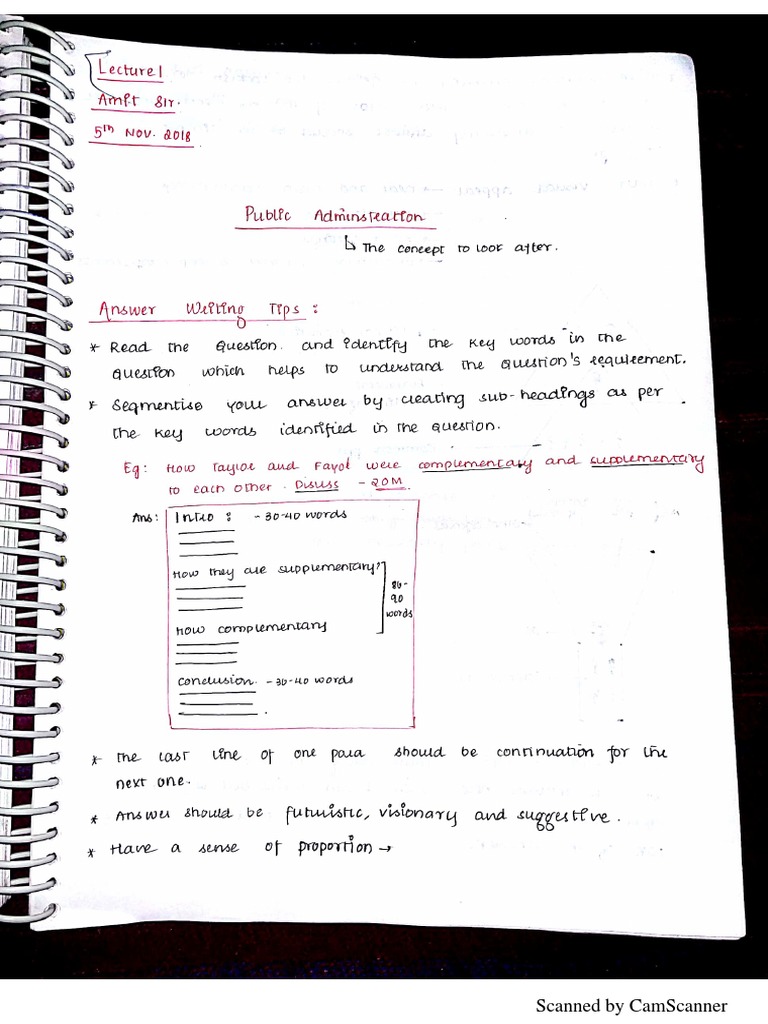 Lecture 1
Amit Sir.
5th Nov. 2018
Public Adminstration
↳ The concept to look after.
Answer Writing Tips :
* Read the Question and identify the key words in the
Question which helps to understand the Question's requirement.
* Segmentise your answer by creating sub-headings as per
the key words identified in the question.
Eg: How Taylor and Fayol were complementary and supplementary
to each other. Disuss - 20M.
Ans: Intro : - 30-40 words
How they are supplementary?
80-
90
words
How complementary
Conclusion - 30-40 words
* The last line of one para should be continuation for the
next one.
* Answer should be futuristic, visionary and suggestive.
* Have a sense of proportion →
Scanned by CamScanner